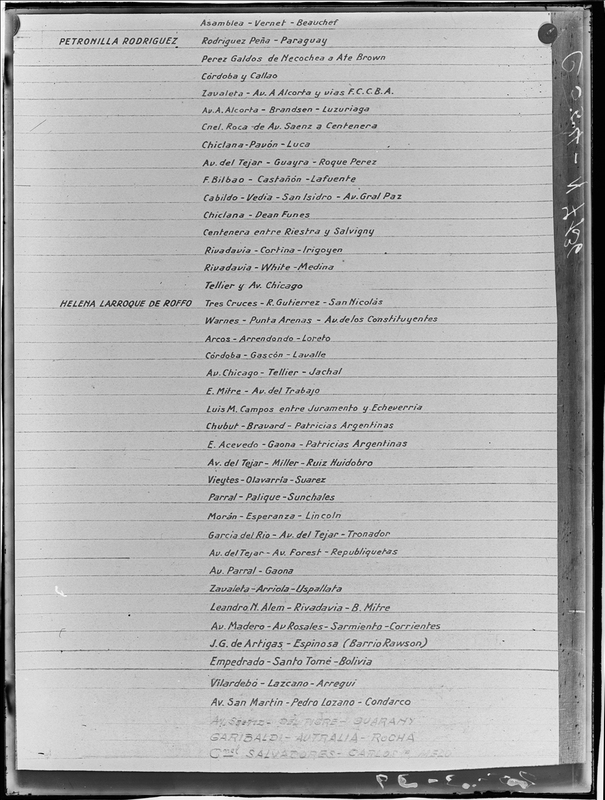 Asamblea - Vernet - Beauchef
PETRONILLA RODRIGUEZ Rodriguez Peña - Paraguay
Perez Galdos de Necochea a Ate Brown
Córdoba y Callao
Zavaleta - Av. A Alcorta y vias F.C.C.B.A.
Av. A. Alcorta - Brandsen - Luzuriaga
Cnel. Roca de Av. Saenz a Centenera
Chiclana - Pavón - Luca
Av. del Tejar - Guayra - Roque Perez
F. Bilbao - Castañón - Lafuente
Cabildo - Vedia - San Isidro - Av. Gral Paz
Chiclana - Dean Funes
Centenera entre Riestra y Salvigny
Rivadavia - Cortina - Irigoyen
Rivadavia - White - Medina
Tellier y Av. Chicago
HELENA LARROQUE DE ROFFO Tres Cruces - R. Gutierrez - San Nicolás
Warnes - Punta Arenas - Av. de los Constituyentes
Arcos - Arrendondo - Loreto
Córdoba - Gascón - Lavalle
Av. Chicago - Tellier - Jachal
E. Mitre - Av. del Trabajo
Luis M. Campos entre Juramento y Echeverria
Chubut - Bravard - Patricias Argentinas
E. Acevedo - Gaona - Patricias Argentinas
Av. del Tejar - Miller - Ruiz Huidobro
Vieytes - Olavarría - Suarez
Parral - Palique - Sunchales
Morán - Esperanza - Lincoln
Garcia del Rio - Av. del Tejar - Tronador
Av. del Tejar - Av. Forest - Republiquetas
Av. Parral - Gaona
Zavaleta - Arriola - Uspallata
Leandro N. Alem - Rivadavia - B. Mitre
Av. Madero - Av Rosales - Sarmiento - Corrientes
J.G. de Artigas - Espinosa (Barrio Rawson)
Empedrado - Santo Tomé - Bolivia
Vilardebó - Lazcano - Arregui
Av. San Martin - Pedro Lozano - Condarco
GUARANY
GARIBALDI - AUTRALIA - ROCHA
SALVADORES - CARLOS